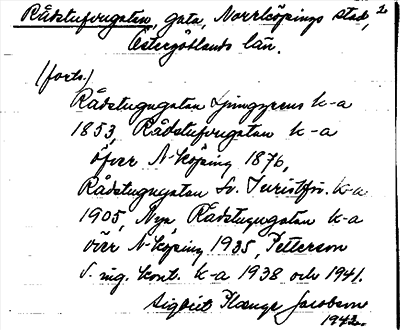 Rådstufvugatan, gata, Norrköpings stad, 2
Östergötlands län.
(forts.)
Rådstugugatan Ljunggrens k-a
1853, Rådstufvugatan k-a
öfver N-köping 1876,
Rådstugugatan Sv. Turistför. k-a
1905, Nya Rådstugugatan k-a
över N-köping 1935, Petterson
S. ing. kont. k-a 1938 och 1941.
Jacobson
1942.